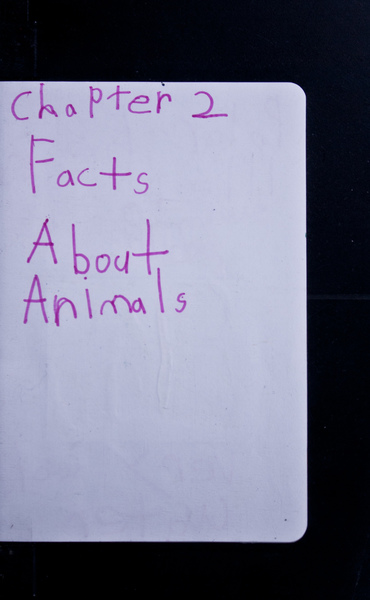 Chapter 2
Facts
About
Animals